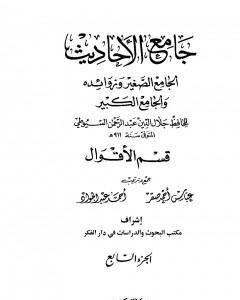 جامع الأحاديث
الجامع الصغير وزوائده
والجامع الكبير
للحافظ جلال الدين عبد الرحمن السيوطي
المتوفى سنة ٩١١هـ
قسم الأقوال
جمع وترتيب
عباس أحمد صقر أحمد عبد الجواد
إشراف
مكتب البحوث والدراسات في دار الفكر
الجزء السابع